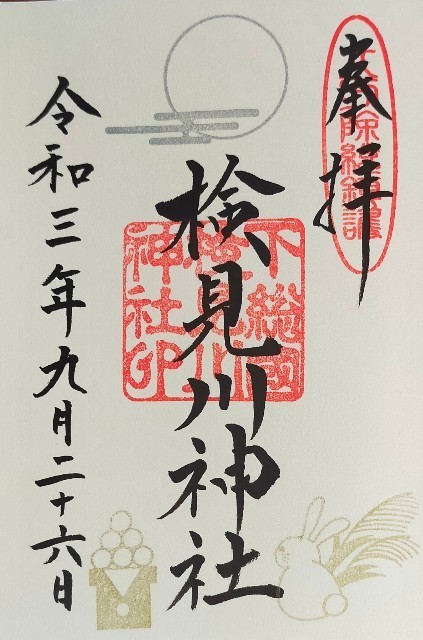 奉拝
検見川神社
下総國
検見川
神社印
令和三年九月二十六日